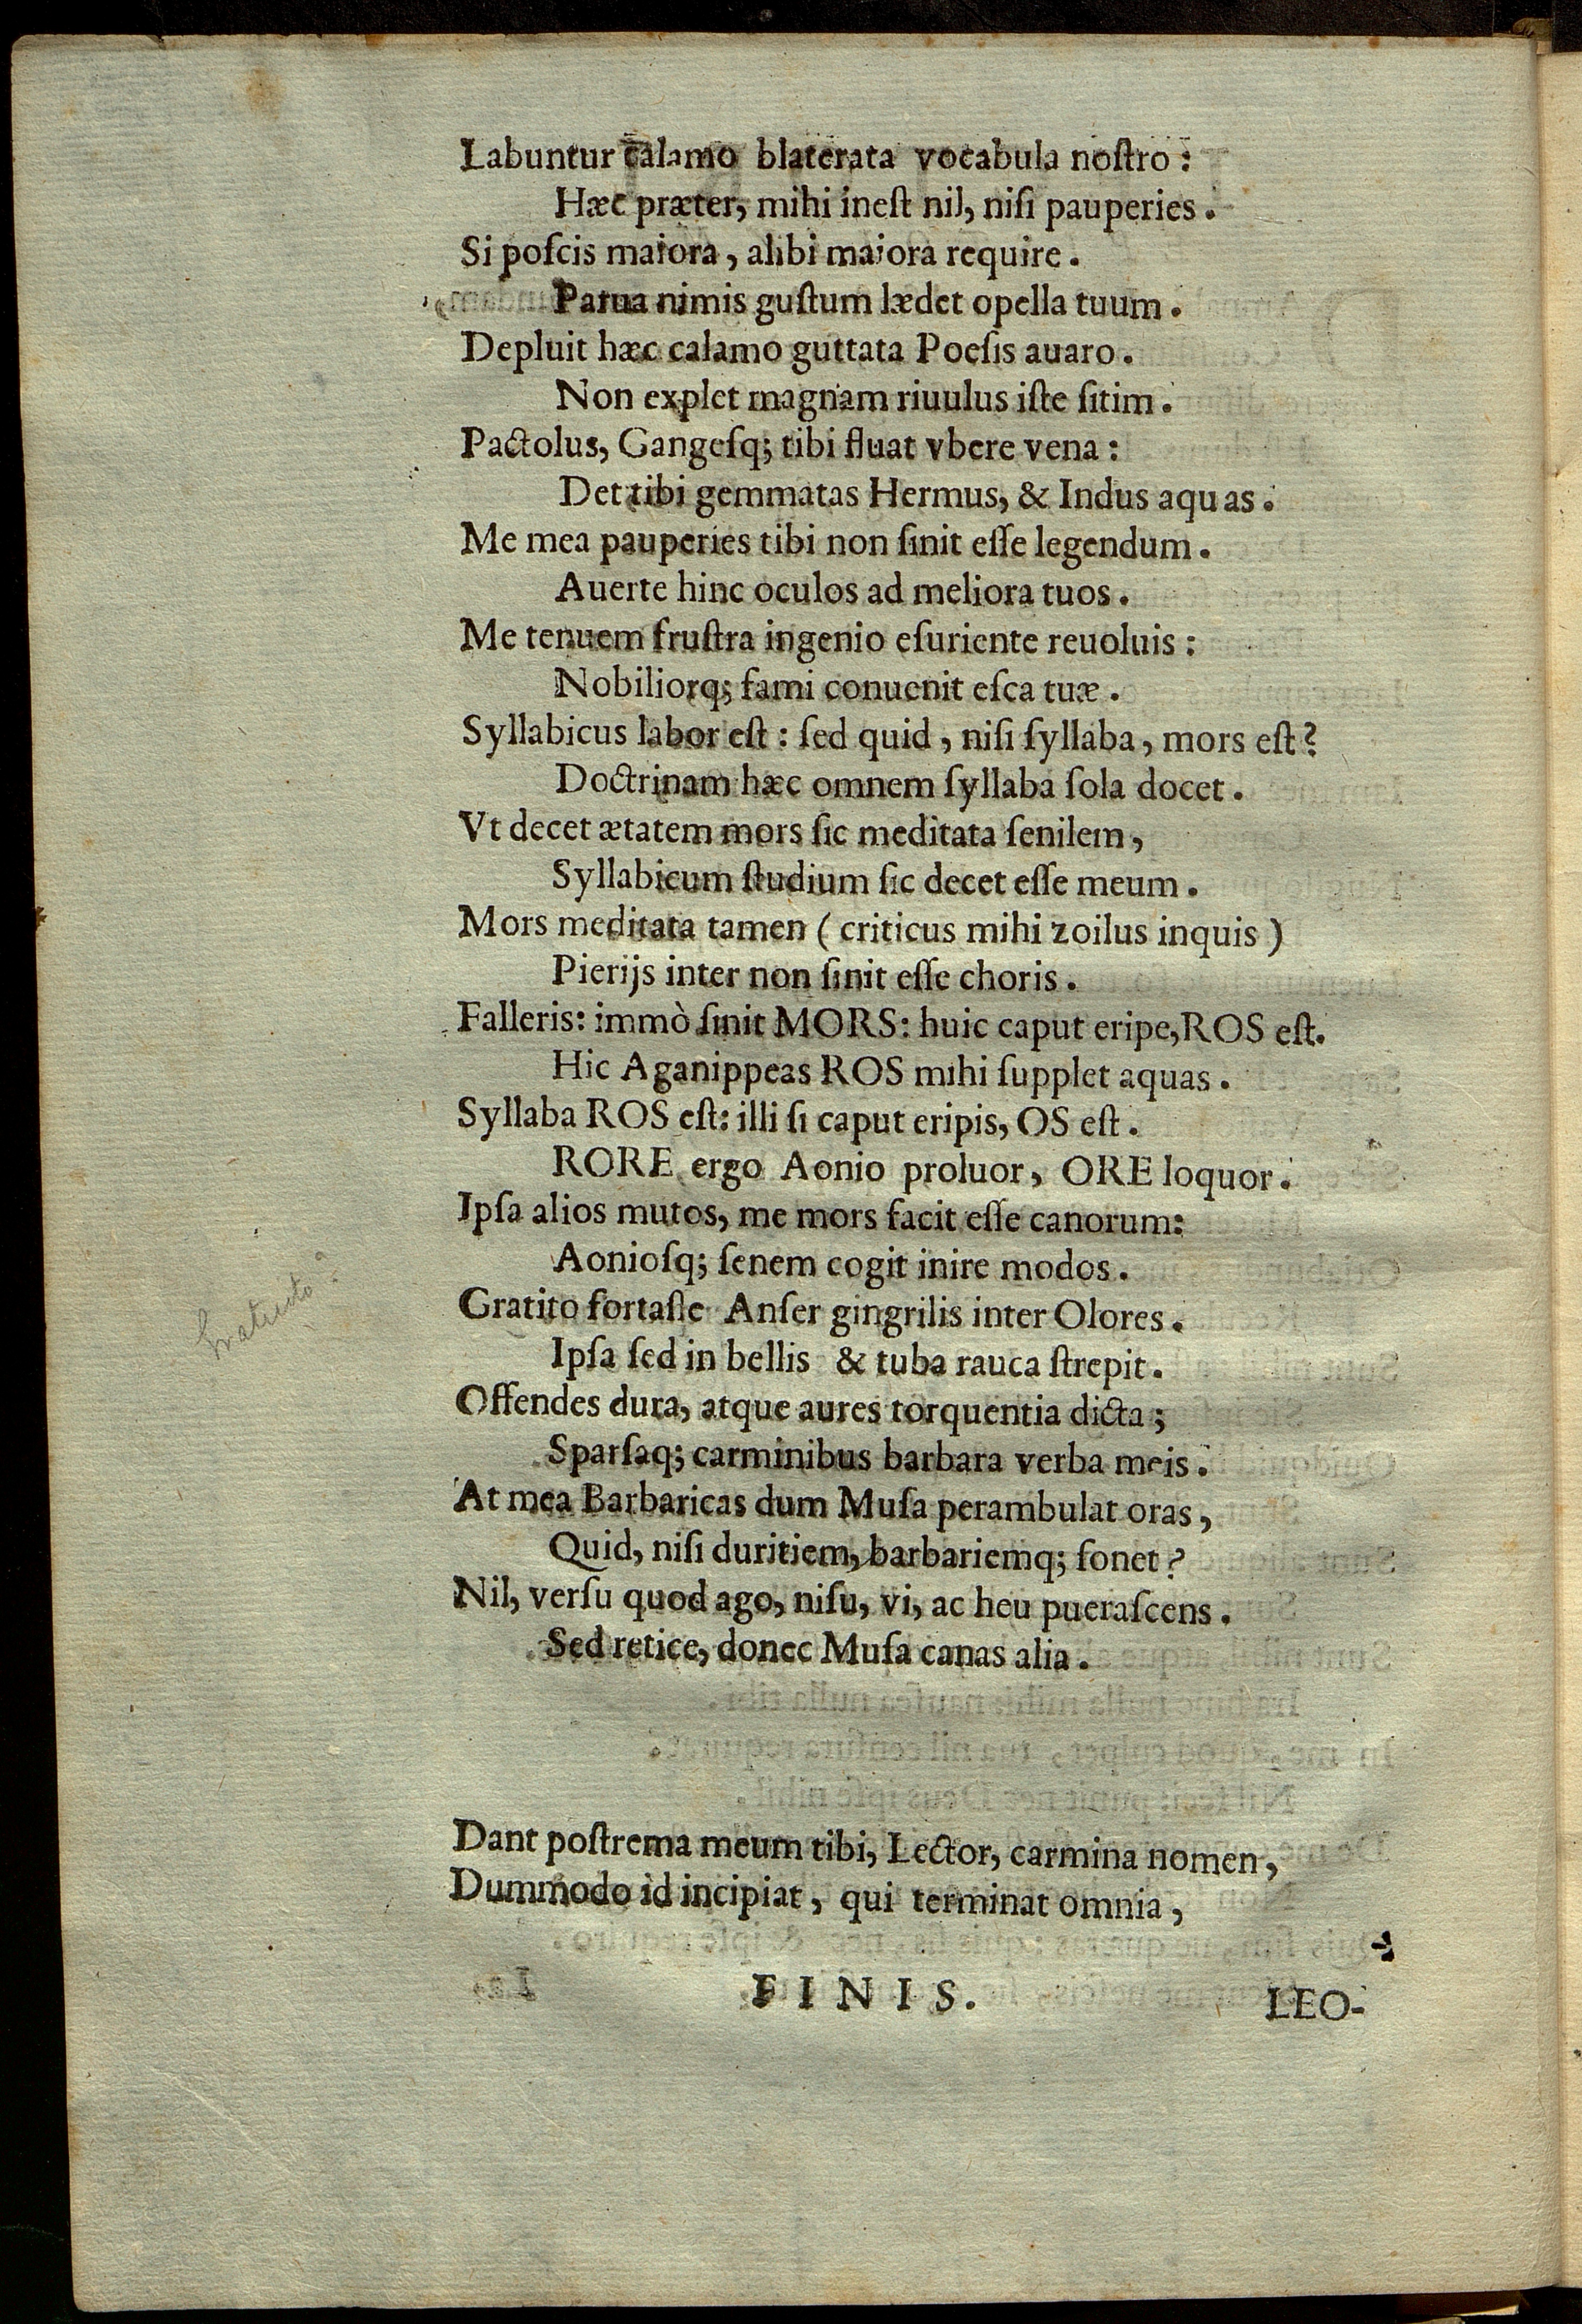 Labuntur calamo blaterata vocabula noſtro:
Hæc præter, mihi ineſt nil, niſi pauperies.
Si poſcis maiora, alibi maiora require.
Parua nimis guſtum lædet opella tuum.
Depluit hæc calamo guttata Poeſis auaro.
Non explet magnam riuulus iſte ſitim.
Pactolus, Gangeſq; tibi fluat vbere vena:
Det tibi gemmatas Hermus, & Indus aquas.
Me mea pauperies tibi non ſinit eſſe legendum.
Auerte hinc oculos ad meliora tuos.
Me tenuem fruſtra ingenio eſuriente reuoluis:
Nobiliorq; fami conuenit eſca tuæ.
Syllabicus labor eſt: ſed quid, niſi ſyllaba, mors eſt?
Doctrinam hæc omnem ſyllaba ſola docet.
Vt decet ætatem mors ſic meditata ſenilem,
Syllabicum ſtudium ſic decet eſſe meum.
Mors meditata tamen (criticus mihi zoilus inquis)
Pierijs inter non ſinit eſſe choris.
Falleris: immò ſinit MORS: huic caput eripe, ROS eſt.
Hic Aganippeas ROS mihi ſupplet aquas.
Syllaba ROS eſt: illi ſi caput eripis, OS eſt.
RORE ergo Aonio proluor, ORE loquor.
Ipſa alios mutos, me mors facit eſſe canorum:
Aonioſq; ſenem cogit inire modos.
Gratito fortaſſe Anſer gingrilis inter Olores.
Ipſa ſed in bellis & tuba rauca ſtrepit.
Offendes dura, atque aures torquentia dicta;
Sparſaq; carminibus barbara verba meis.
At mea Barbaricas dum Muſa perambulat oras,
Quid, niſi duritiem, barbariemq; ſonet?
Nil, verſu quod ago, niſu, vi, ac heu pueraſcens.
Sed retice, donec Muſa canas alia.
Dant poſtrema meum tibi, Lector, carmina nomen,
Dummodo id incipiat, qui terminat omnia,
FINIS.
LEO-